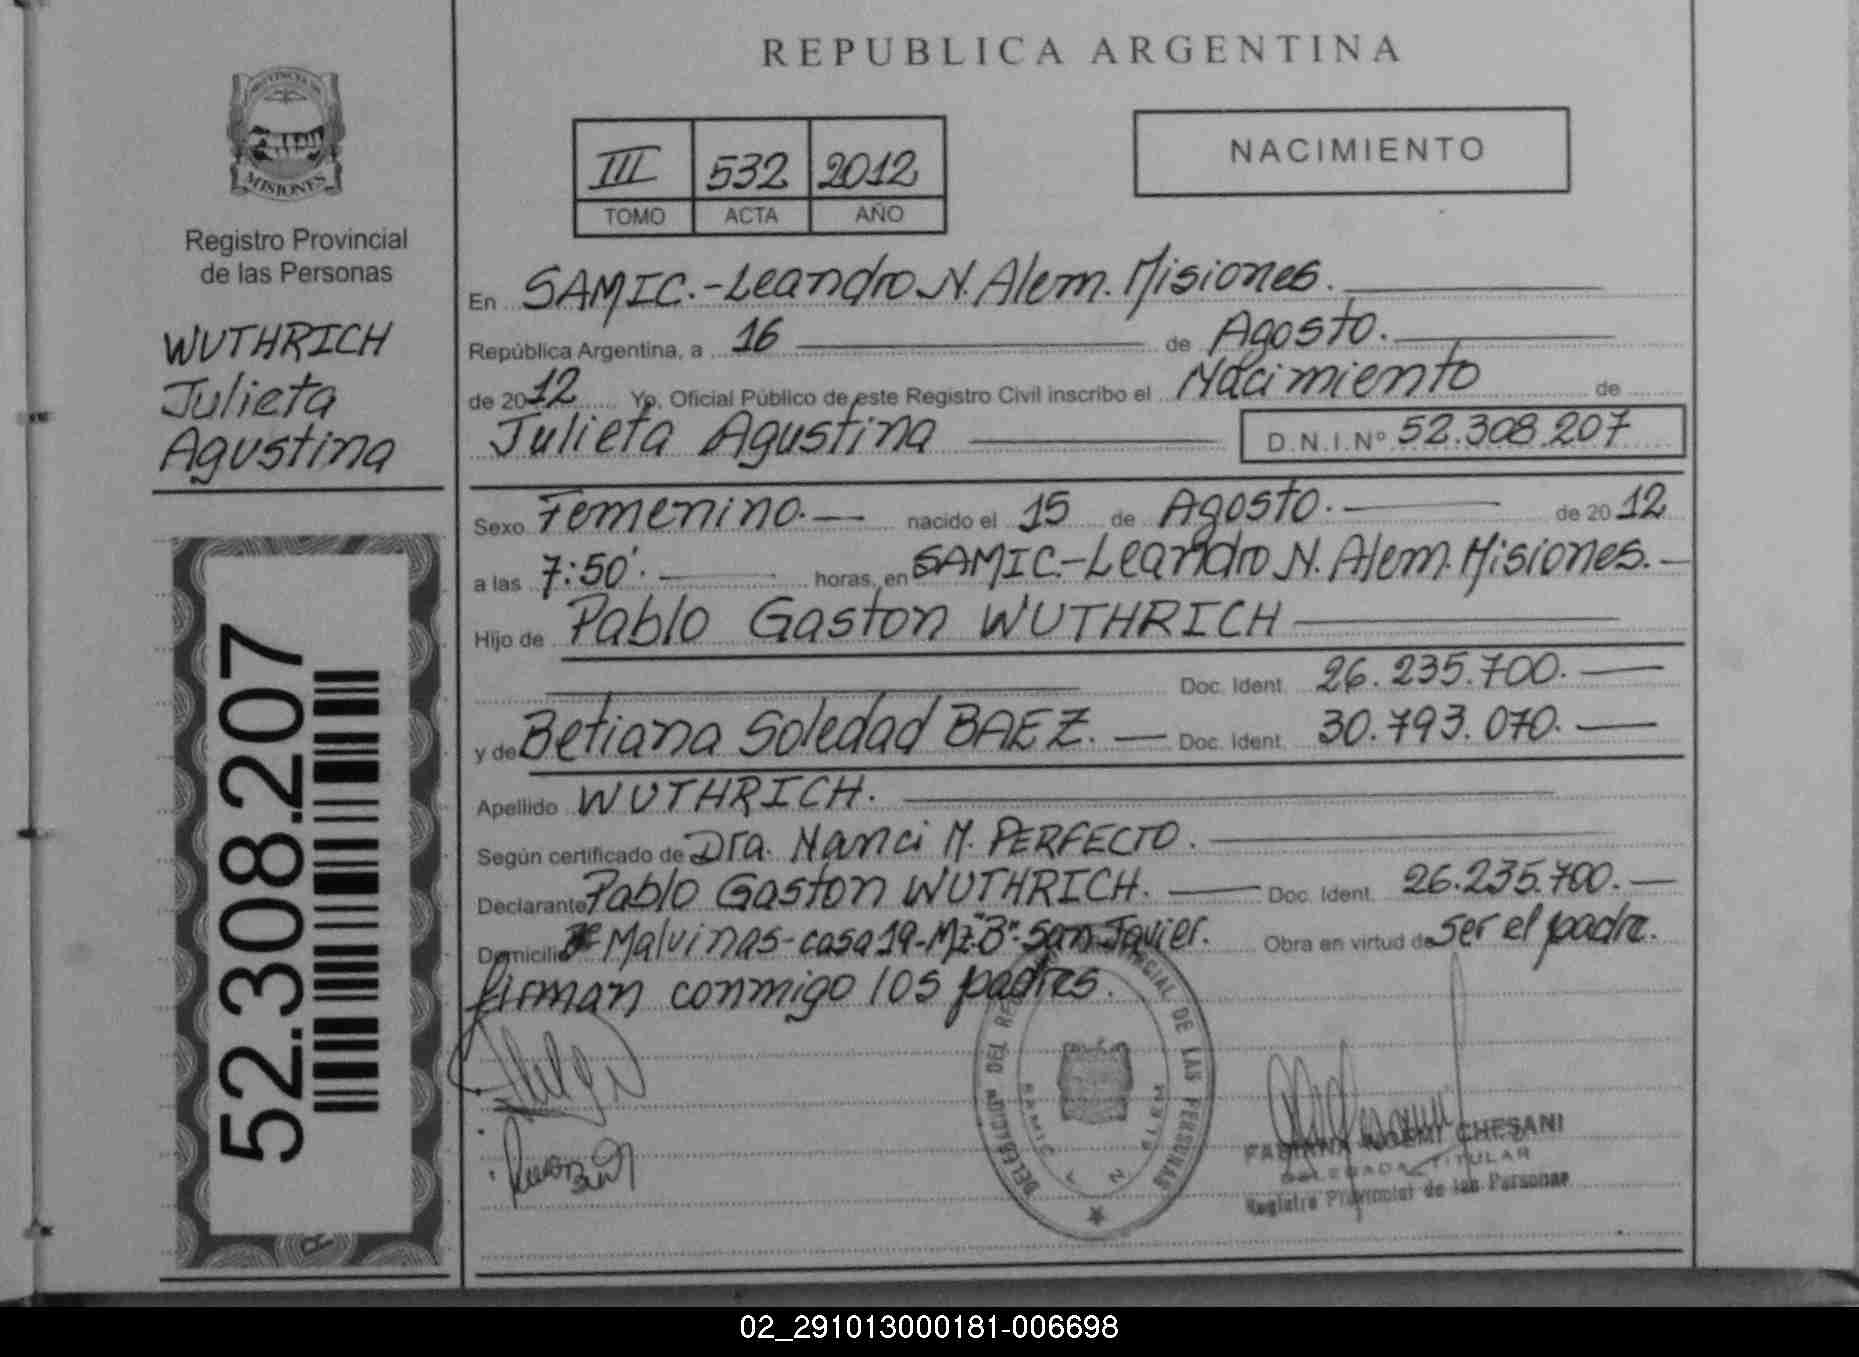 REPUBLICA ARGENTINA
PROVINCIA DE
MISIONES
Registro Provincial
de las Personas
WUTHRICH
Julieta
Agustina
52.308.207
III 532 2012
TOMO ACTA AÑO
NACIMIENTO
En SAMIC.-Leandro N. Alem. Misiones.
República Argentina, a 16 de Agosto.
de 2012 Yo, Oficial Público de este Registro Civil inscribo el Nacimiento de
Julieta Agustina D.N.I.Nº 52.308.207
Sexo Femenino.- nacido el 15 de Agosto. de 2012
a las 7:50'. horas, en SAMIC.-Leandro N. Alem. Misiones.-
Hijo de Pablo Gaston WUTHRICH
Doc. Ident. 26.235.700.
y de Betiana Soledad BAEZ. Doc. Ident. 30.793.070.
Apellido WUTHRICH.
Según certificado de Dra. Nanci M. PERFECTO.
Declarante Pablo Gaston WUTHRICH. Doc. Ident. 26.235.700.
Domicilio Malvinas-casa 19-Mz."B"-San Javier. Obra en virtud de ser el padre.
firman conmigo los padres.
DELEGACION DEL REGISTRO PROVINCIAL DE LAS PERSONAS
SAMIC
N ALEM
FABIANA NOEMI CHESANI
DELEGADA TITULAR
Registro Provincial de las Personas
02_291013000181-006698